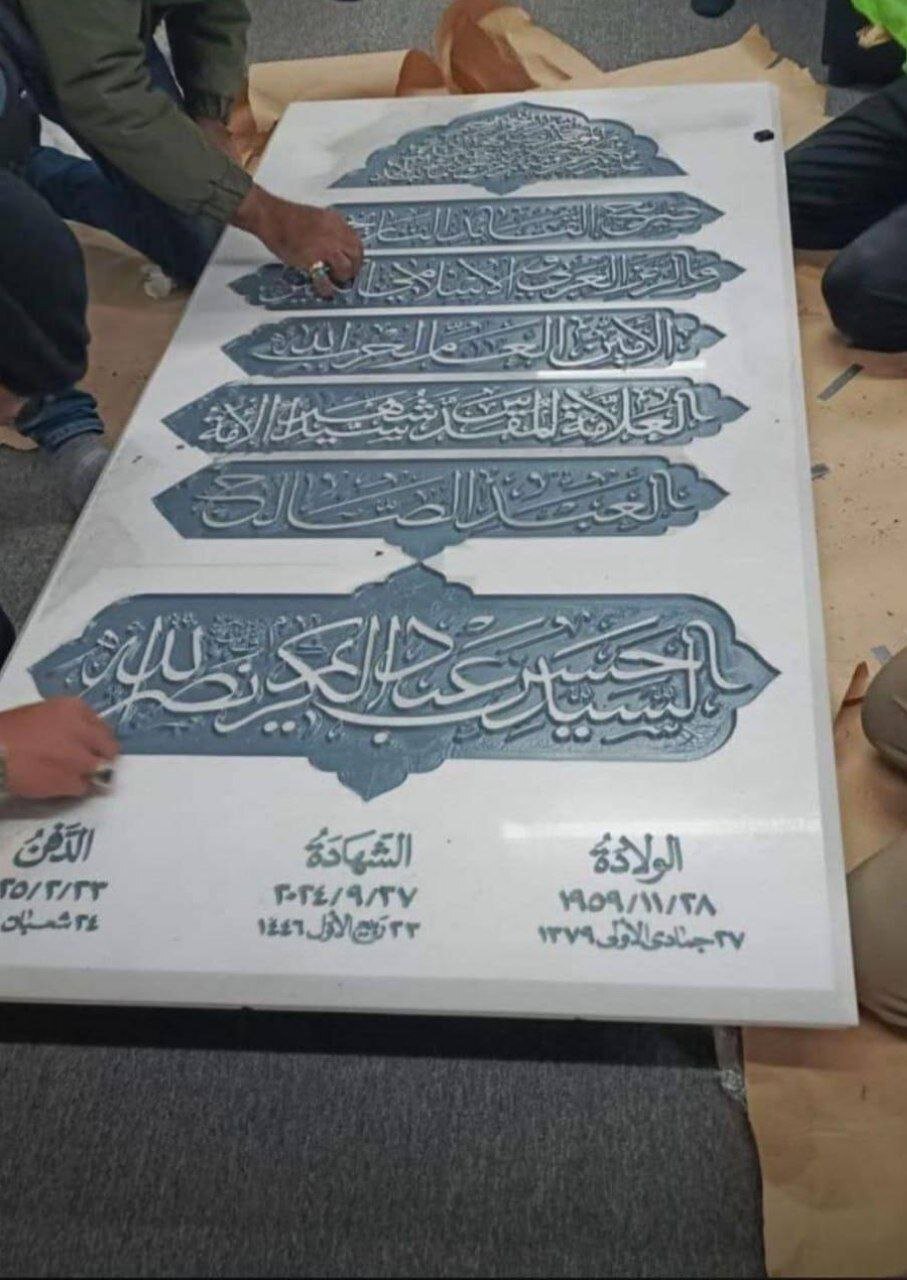 ضريح القائد
والرمز العربي الإسلامي
الأمين العام لحزب الله
العلامة المقدس شهيد الأمة
العبد الصالح
السيد حسن عبد الكريم نصر الله
الولادة الشهادة الدفن
١٩٥٩/١١/٢٨ ٢٠٢٤/٩/٢٧ ٢٥/٢/٢٣
٢٧ جمادى الأولى ١٣٧٩ ٢٣ ربيع الأول ١٤٤٦ ٢٤ شعبان